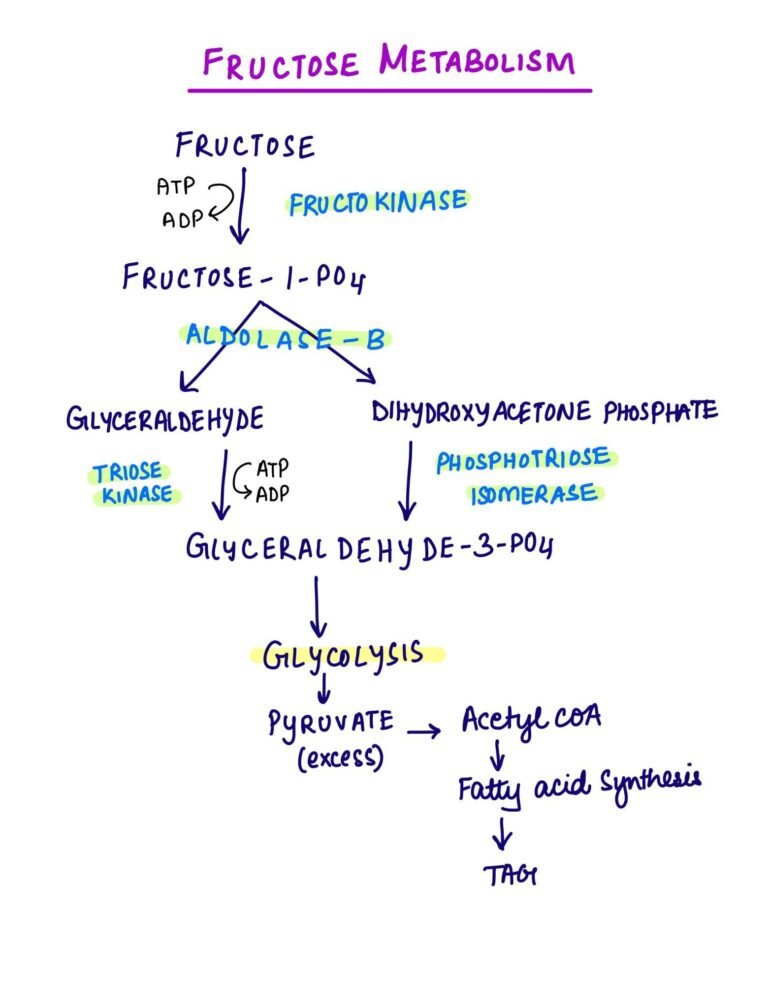 FRUCTOSE METABOLISM
FRUCTOSE
ATP
ADP
FRUCTOKINASE
FRUCTOSE-1-PO4
ALDOLASE-B
GLYCERALDEHYDE
DIHYDROXYACETONE PHOSPHATE
TRIOSE
KINASE
ATP
ADP
PHOSPHOTRIOSE
ISOMERASE
GLYCERALDEHYDE-3-PO4
GLYCOLYSIS
PYRUVATE
(excess)
Acetyl COA
Fatty acid Synthesis
TAG